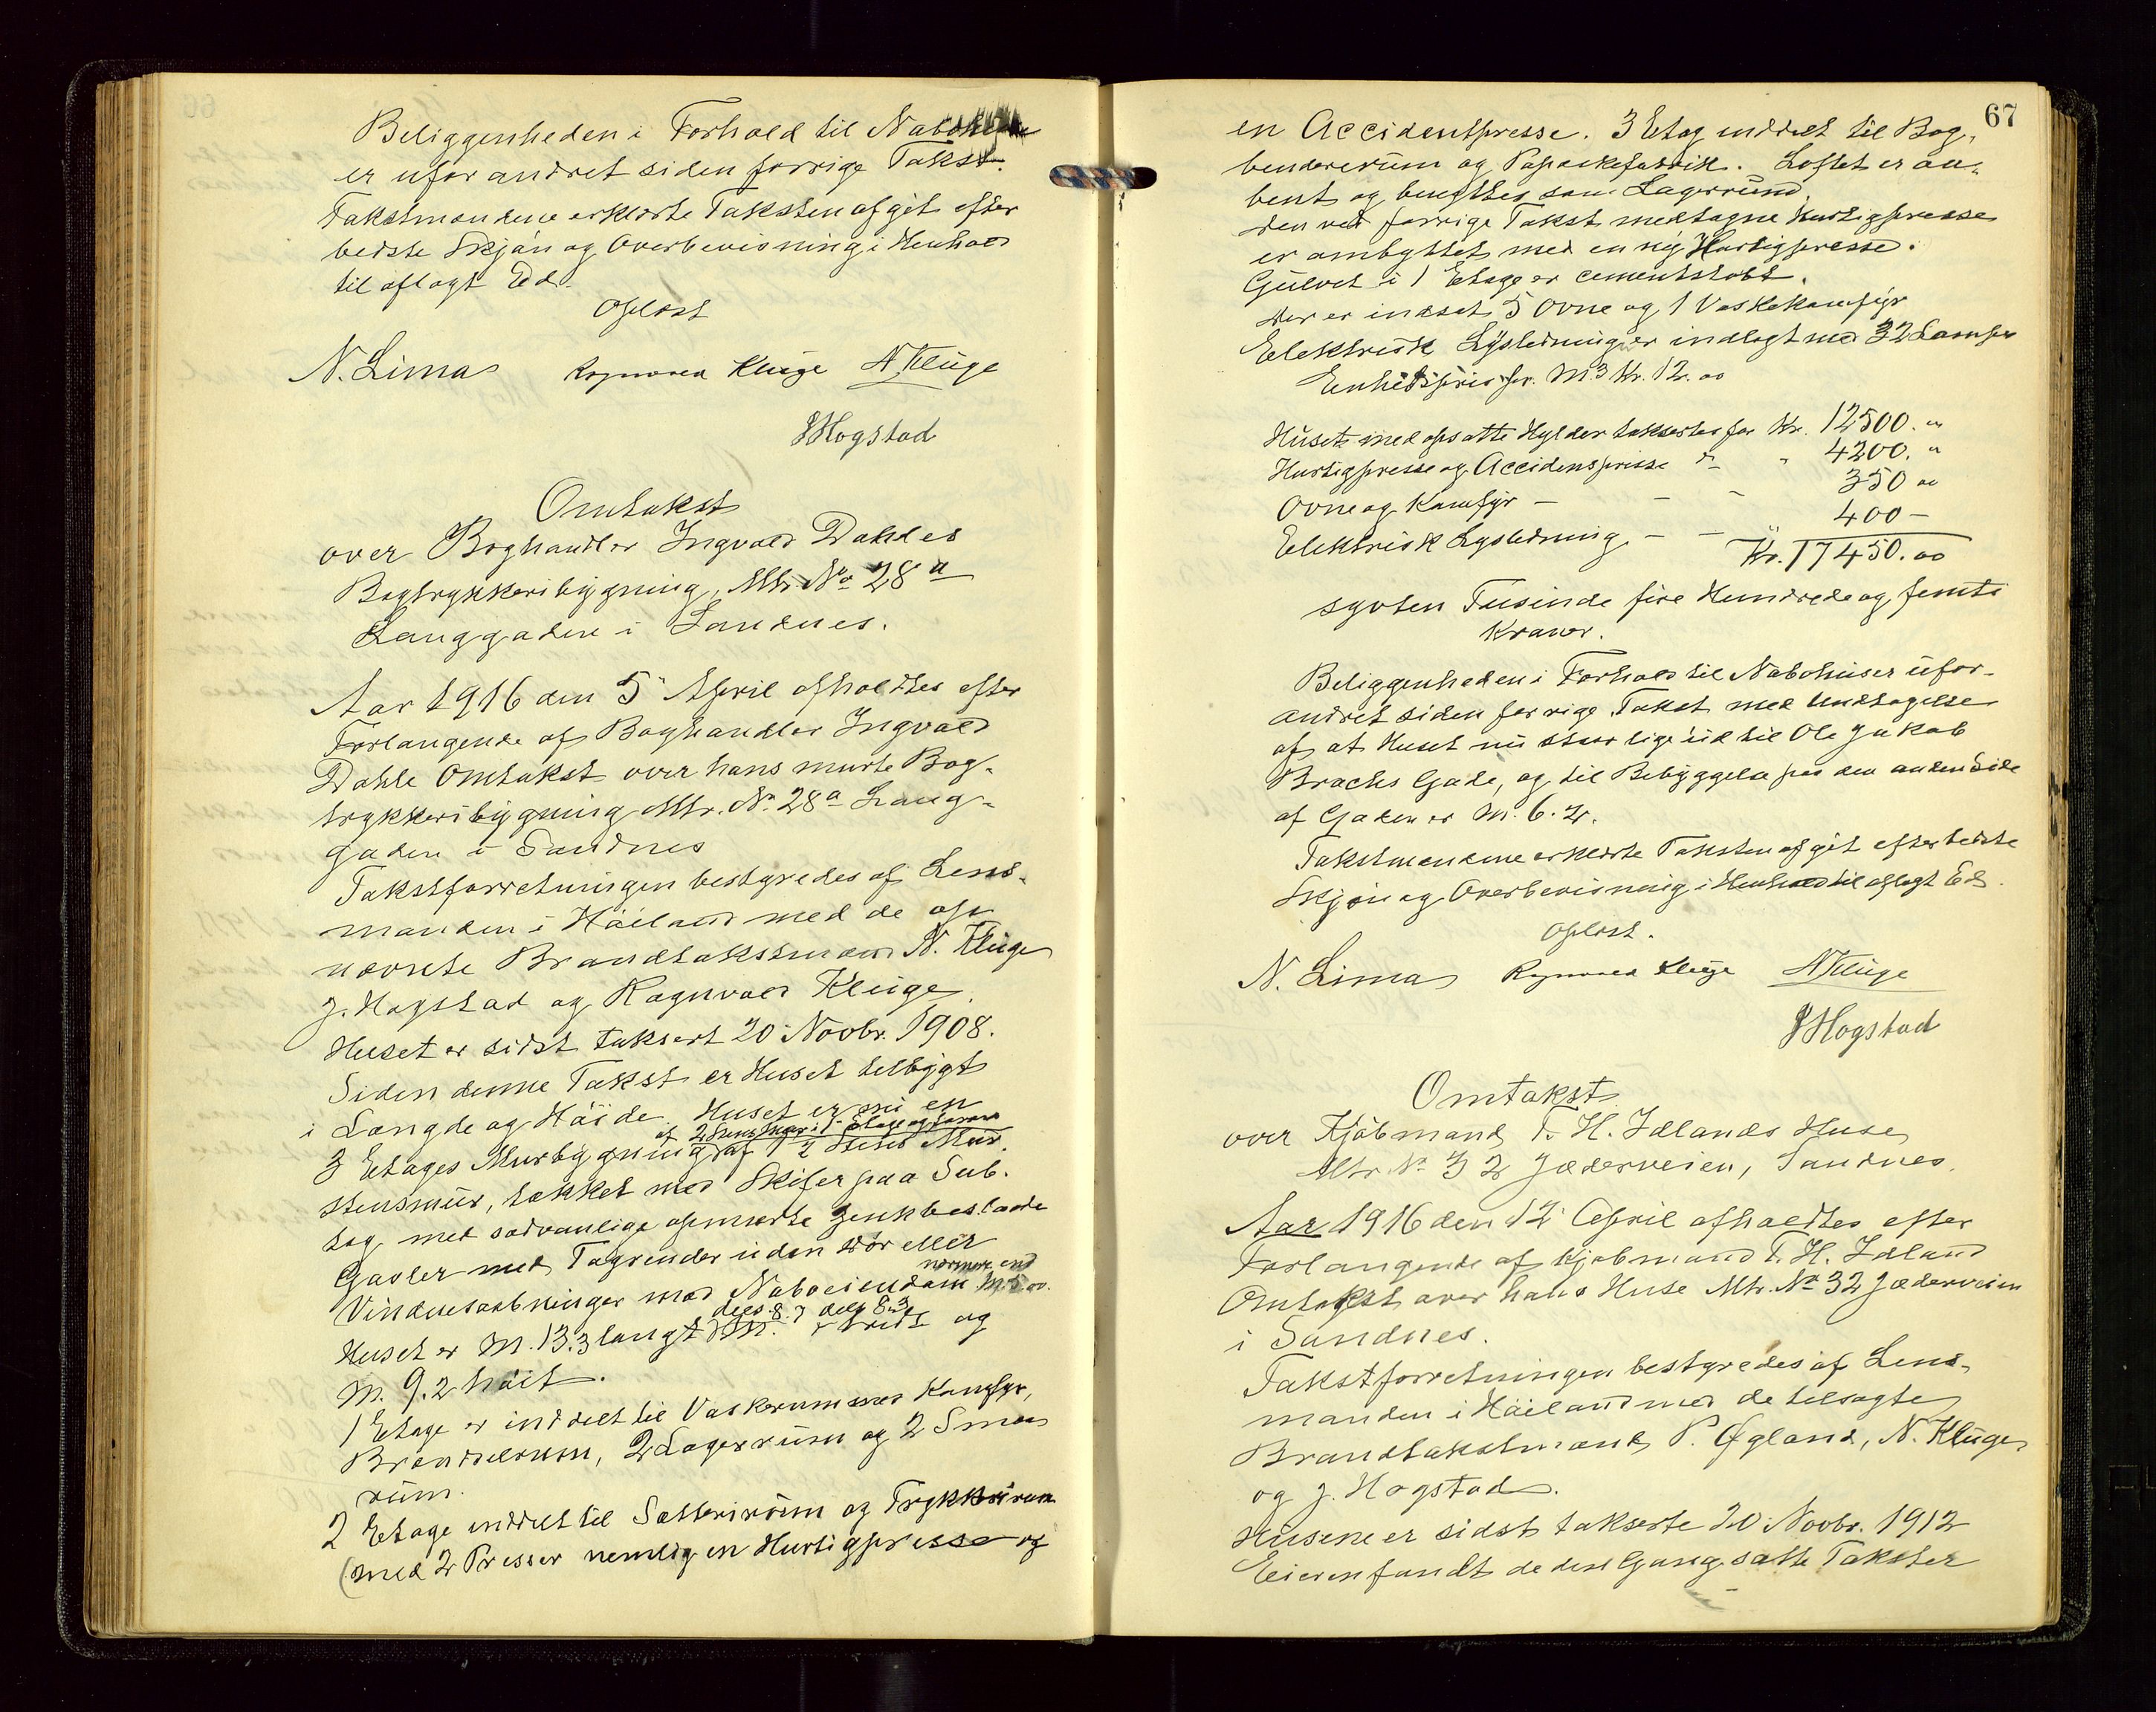 Beliggenheden i Forhold til Nabohuse
er uforandret siden forrige Takst.
Takstmændene erklærte Taksten afgit efter
bedste Skjøn og Overbevisning i Henhold
til aflagt Ed.
Oplæst
N. Lima Ragnvald Kluge N Kluge
J Hogstad
Omtakst
over Boghandler Ingvald Dahles
Bogtrykkeribygning, Mtr. No 28 a
Langgaden i Sandnes.
Aar 1916 den 5 April afholdtes efter
Forlangende af Boghandler Ingvald
Dahle Omtakst over hans murte Bog-
trykkeribygning Mtr. No 28 a Lang-
gaden i Sandnes
Takstforretningen bestyredes af Lens-
manden i Høiland med de op-
nævnte Brandtakstmænd N. Kluge
J. Hogstad og Ragnvald Kluge.
Huset er sidst taksert 20 Novbr. 1908.
Siden denne Takst er Huset tilbygt
i Længde og Høide. Huset er nu en
af 2 Stens Mur i 1 Etage og forøvr
3 Etages Murbygning af 1 ½ Stens Mur.
stensmur, tækket med Skifer paa Sub-
tag, med sædvanlige opmurte zenkbeslaatte
Gavler med Tagrender uden Dør eller
nærmere end
Vinduesaabninger mod Naboeiendom M 5.00.
dels 8.7 dels 8.3
Huset er M. 13.3 langt M. bredt og
M. 9.2 høit.
1 Etage er inddelt til Vaskerum med Kamfyr,
Brændselrum, 2 Lagerrum og 2 Smaa
rum.
2 Etage inddelt til Sætterirum og Trykkerirum
(med 2 Presser nemlig en Hurtigpresse og
67
en Accidentspresse. 3 Etag inddelt til Bog-
benderirum og Papæskefabrik. Loftet er aa-
bent og benyttes som Lagerrum.
Den ved forrige Takst medtagne Hurtigpresse
er ombyttet med en ny Hurtigpresse.
Gulvet i 1 Etage er cementstøbt.
Der er indsat 5 Ovne og 1 Vaskekamfyr
Elektrisk Lysledning er indlagt med 32 Lamper
Enhedspris pr. M3 Kr. 12.00
Huset med opsatte Hylder taksertes for Kr. 12500. "
Hurtigpresse og Accidenspresse d- " 4200. "
Ovne og Kamfyr - - - 350 00
Elektrisk Lysledning - - " 400 -
Kr. 17450.00
sytten Tusinde fire Hundrede og femti
Kroner.
Beliggenheden i Forhold til Nabohuser ufor-
andret siden forrige Takst med Undtagelse
af at Huset nu støter lige ud til Ole Jakob
Brochs Gade, og til Bebyggelse paa den anden Side
af Gaden er M. 6.2.
Takstmændene erklærte Taksten afgit efter bedste
Skjøn og Overbevisning i Henhold til aflagt Ed.
Oplæst.
N. Lima Ragnvald Kluge N Kluge
J Hogstad
Omtakst
over Kjøbmand T. H. Idlands Huse
Mtr No 32 Jæderveien, Sandnes.
Aar 1916 den 12 April afholdtes efter
Forlangende af Kjøbmand T. H. Idland
Omtakst over hans Huse Mtr. No 32 Jæderveien
i Sandnes.
Takstforretningen bestyredes af Lens-
manden i Høiland med de tilsagte
Brandtakstmænd P. Øgland, N. Kluge
og J. Hogstad.
Husene er sidst takserte 20 Novbr. 1912
Eieren fandt de den Gang satte Takster